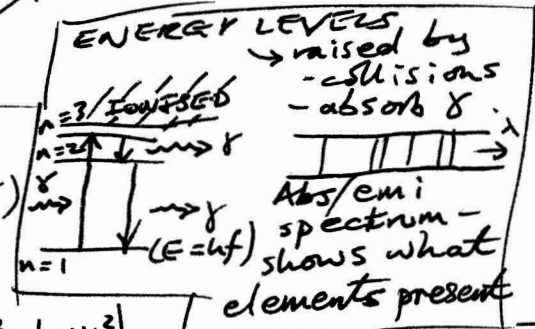 ENERGY LEVELS
↳ raised by
- collisions
- absorb γ
n=3/IONISED
n=2
γ
γ
γ
(E=hf)
n=1
λ
Abs/emi
spectrum -
shows what
elements present